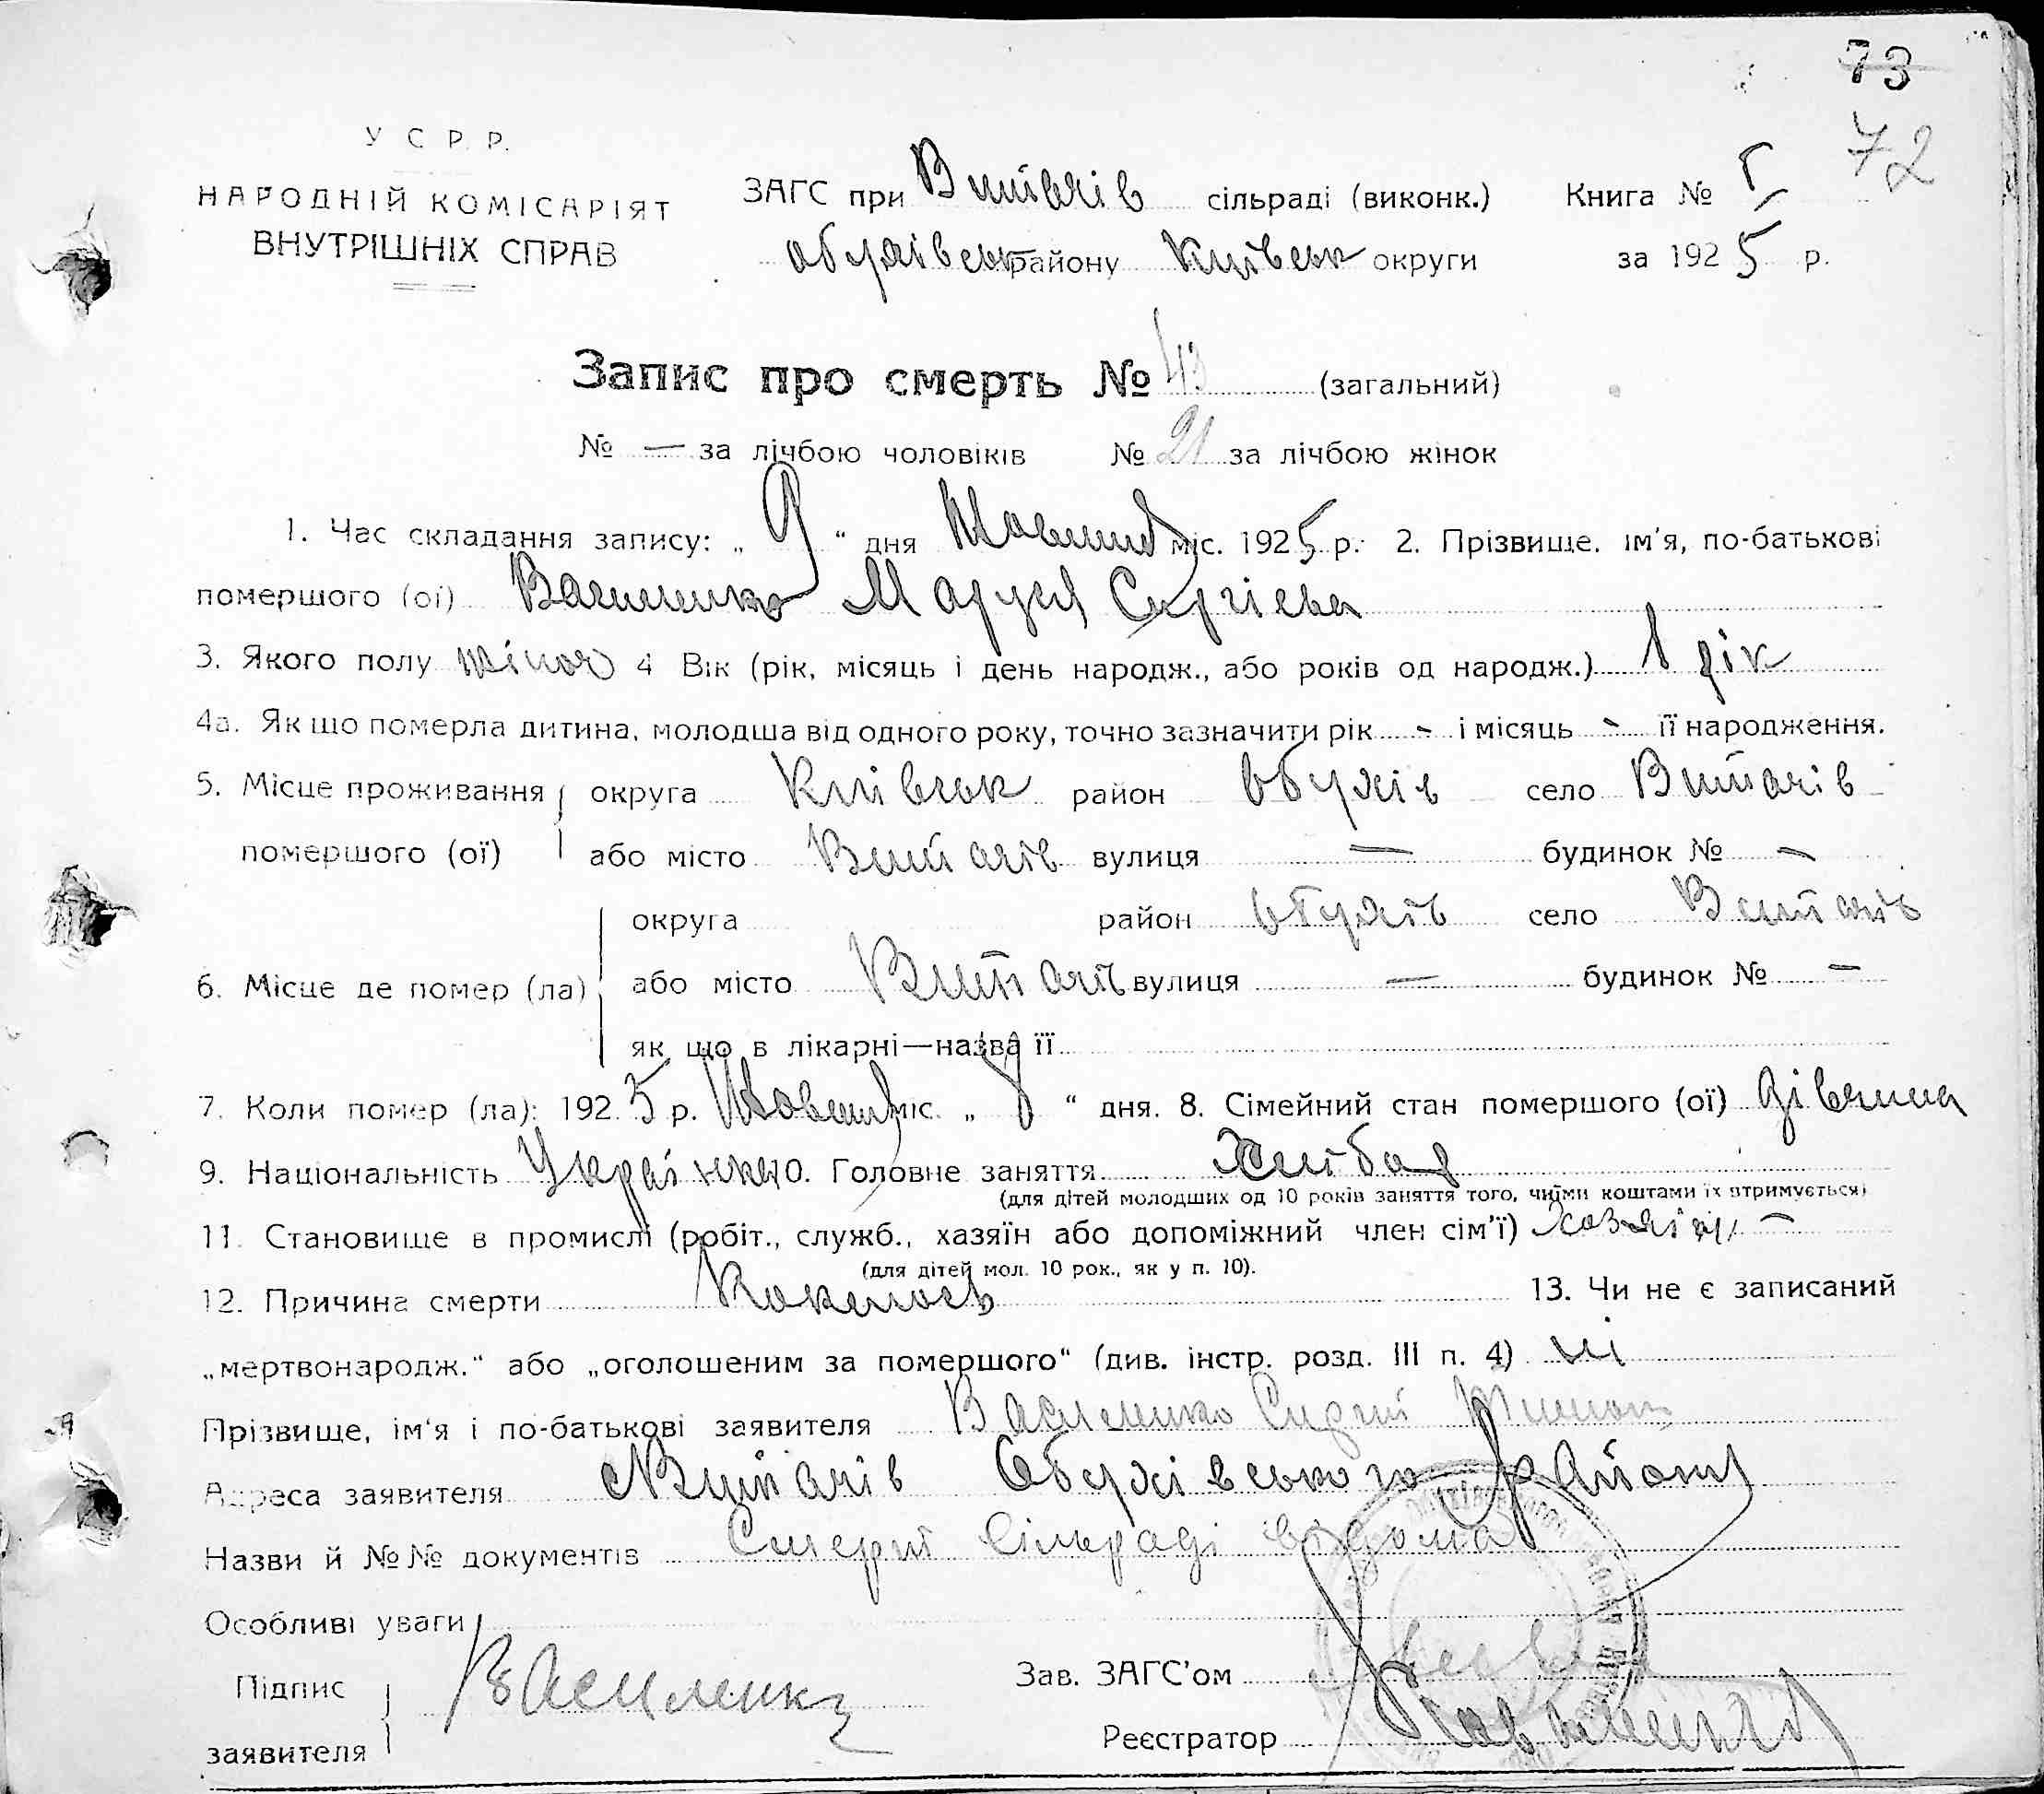 73
72
У С Р. Р.
НАРОДНІЙ КОМІСАРІЯТ
ВНУТРІШНІХ СПРАВ
ЗАГС при Витачів сільраді (виконк.) Книга №
Обухівськ району Київськ округи за 1925 р.
Запис про смерть № 43 (загальний)
№ — за лічбою чоловіків № 21 за лічбою жінок
1. Час складання запису: „ 9 “ дня Жовтня міс. 1925 р. 2. Прізвище, ім'я, по-батькові
помершого (ої) Василенко Маруся Сергієва
3. Якого полу жіноч 4 Вік (рік, місяць і день народж., або років од народж.) 1 рік
4а. Як що померла дитина, молодша від одного року, точно зазначити рік - і місяць - її народження.
5. Місце проживання помершого (ої) округа Київськ район Обухів село Витачів
або місто Витачів вулиця — будинок № —
6. Місце де помер (ла) округа район Обухів село Витачів
або місто Витачів вулиця — будинок № —
як що в лікарні—назва її
7. Коли помер (ла): 1925 р. Жовтня міс. „ 8 “ дня. 8. Сімейний стан помершого (ої) дівчина
9. Національність Українка 10. Головне заняття Хлібор
(для дітей молодших од 10 років заняття того, чиїми коштами їх втримується)
11. Становище в промислі (робіт., служб., хазяїн або допоміжний член сім'ї) хазяїн —
(для дітей мол. 10 рок., як у п. 10).
12. Причина смерти Коклюш 13. Чи не є записаний
„мертвонародж.“ або „оголошеним за помершого“ (див. інстр. розд. III п. 4) ні
Прізвище, ім'я і по-батькові заявителя Василенко Сергій
Адреса заявителя Витачів Обухівського району
Назви й №№ документів Смерть сільраді відома
Особливі уваги
Підпис заявителя Василенко
Зав. ЗАГС'ом
Реєстратор